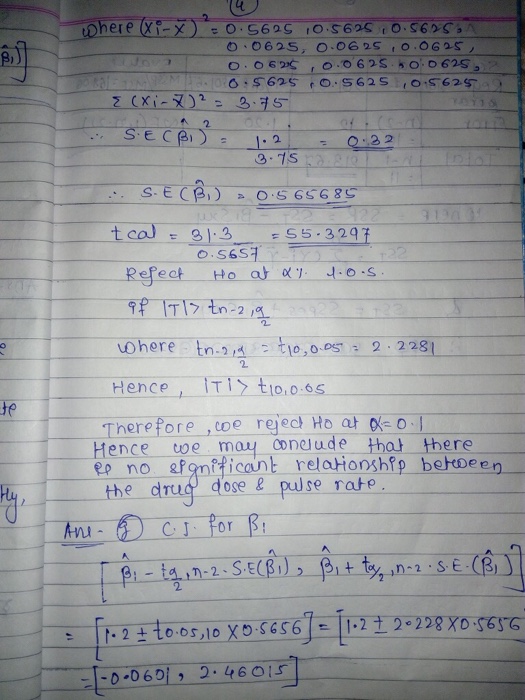 (4)
where (xi-x̄)² = 0.5625, 0.5625, 0.5625,
0.0625, 0.0625, 0.0625,
0.0625, 0.0625, 0.0625,
0.5625, 0.5625, 0.5625
Σ (xi-x̄)² = 3.75
∴ S.E(β̂₁)² = 1.2 / 3.75 = 0.32
∴ S.E(β̂₁) = 0.565685
t cal = 31.3 / 0.5657 = 55.3297
Reject Ho at α% l.o.s.
if |T| > tn-2, α/2
where tn-2, α/2 = t10, 0.05 = 2.2281
Hence, |T| > t10, 0.05
Therefore, we reject Ho at α = 0.1
Hence we may conclude that there
is no significant relationship between
the drug dose & pulse rate.
Ans- C.I. for β₁
[β̂₁ - tα/2, n-2 · S.E(β̂₁), β̂₁ + tα/2, n-2 · S.E.(β̂₁)]
= [1.2 ± t0.05, 10 × 0.5656] = [1.2 ± 2.228 × 0.5656
= [-0.0601, 2.46015]